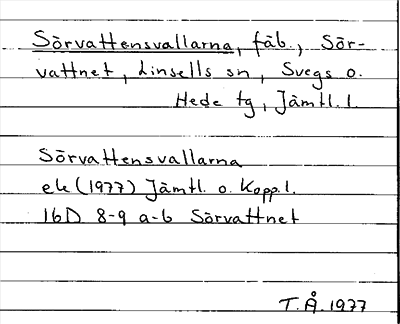 Sörvattensvallarna, fäb., Sör-
vattnet, Linsells sn, Svegs o.
Hede tg, Jämtl. l.
Sörvattensvallarna
ek (1977) Jämtl. o. Kopp. l.
16D 8-9 a-b Sörvattnet
T.Å. 1977